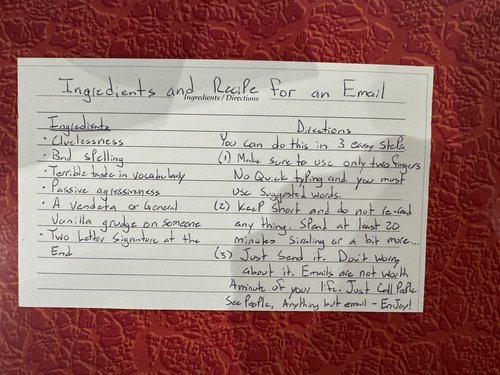 Ingredients and Recipe for an Email
Ingredients / Directions
Ingredients
· Cluelessness
· Bad spelling
· Terrible taste in vocabularly
· Passive agressiveness
· A Vendeta or General
Vanilla grudge on someone
· Two Letter Signature at the
End
Directions
You can do this in 3 easy steps
(1) Make sure to use only two fingers
No Quick typing and you must
use suggested words.
(2) Keep short and do not re-read
any thing. Spend at least 20
minutes or a bit more...
(3) Just Send it. Don't worry
about it. Emails are not worth
A minute of your life. Just Call People
See People, Anything but email - Enjoy!